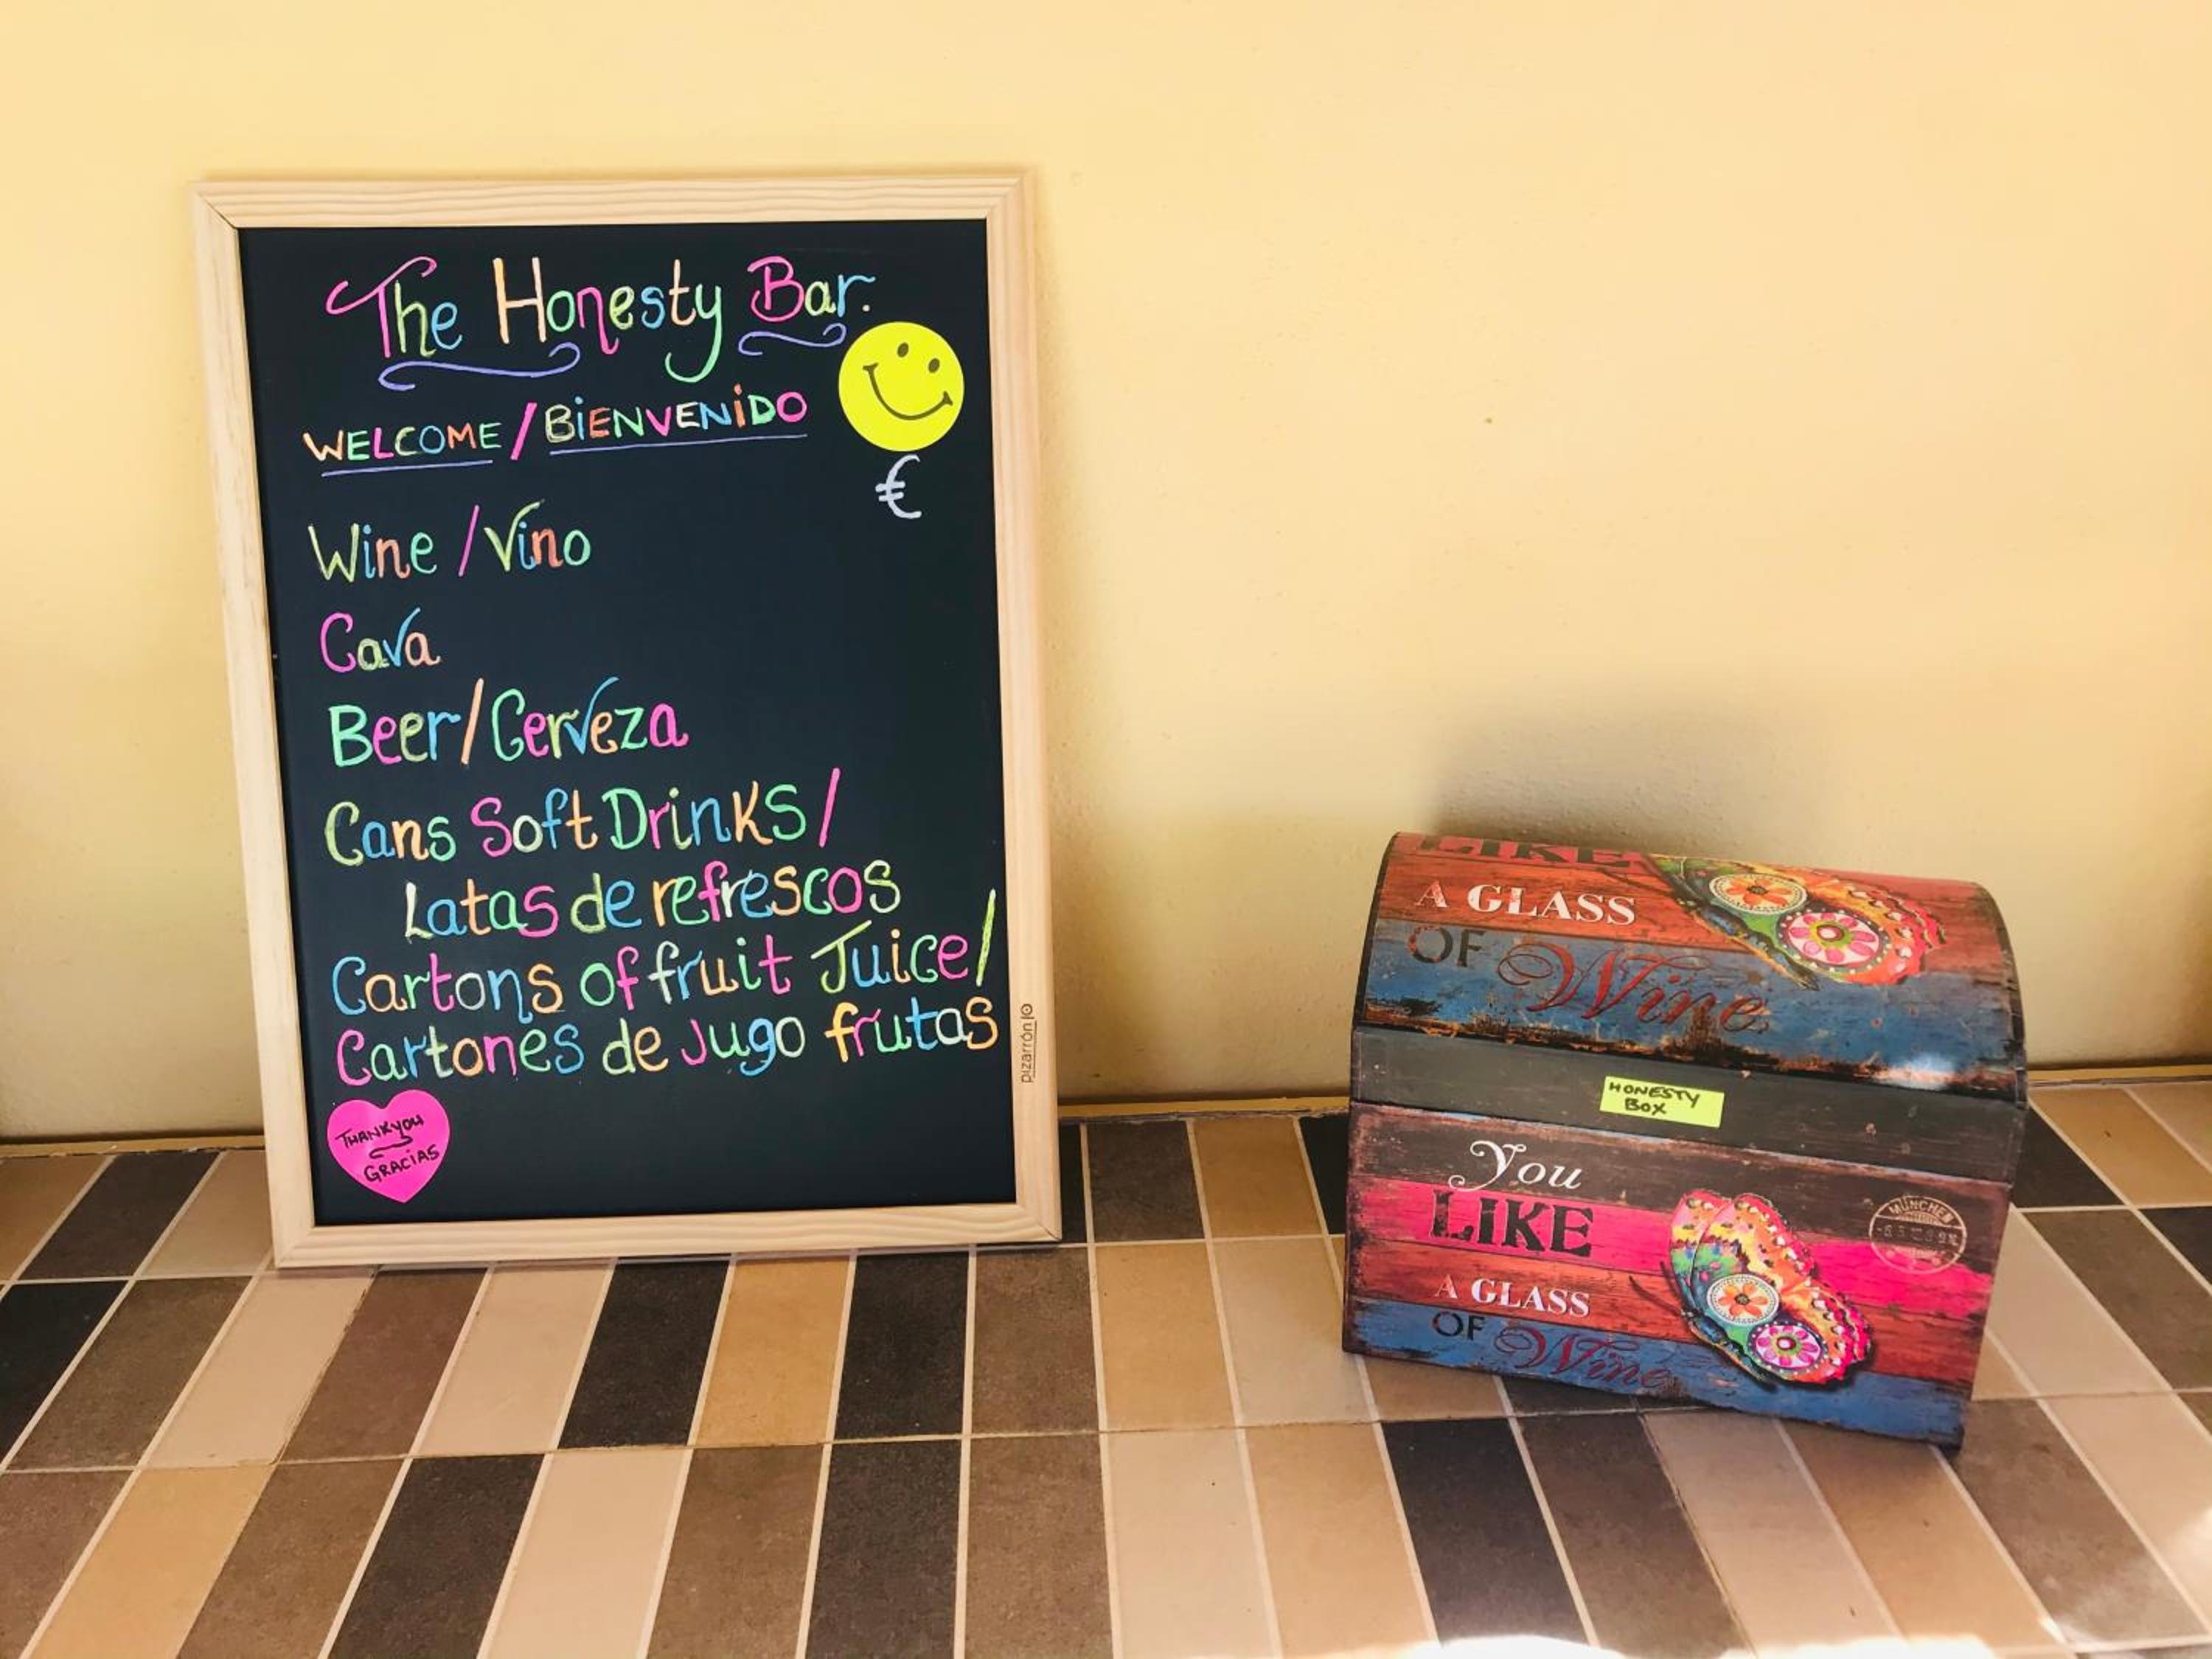 The Honesty Bar.
WELCOME / BiENVENiDO
€
Wine / Vino
Cava
Beer / Cerveza
Cans Soft Drinks /
Latas de refrescos
Cartons of fruit Juice /
Cartones de Jugo frutas
THANKYOU
GRACiAS
pizarrón
LIKE
A GLASS
OF Wine
HONESTY
BOX
You
LIKE
A GLASS
OF Wine
MÜNCHEN